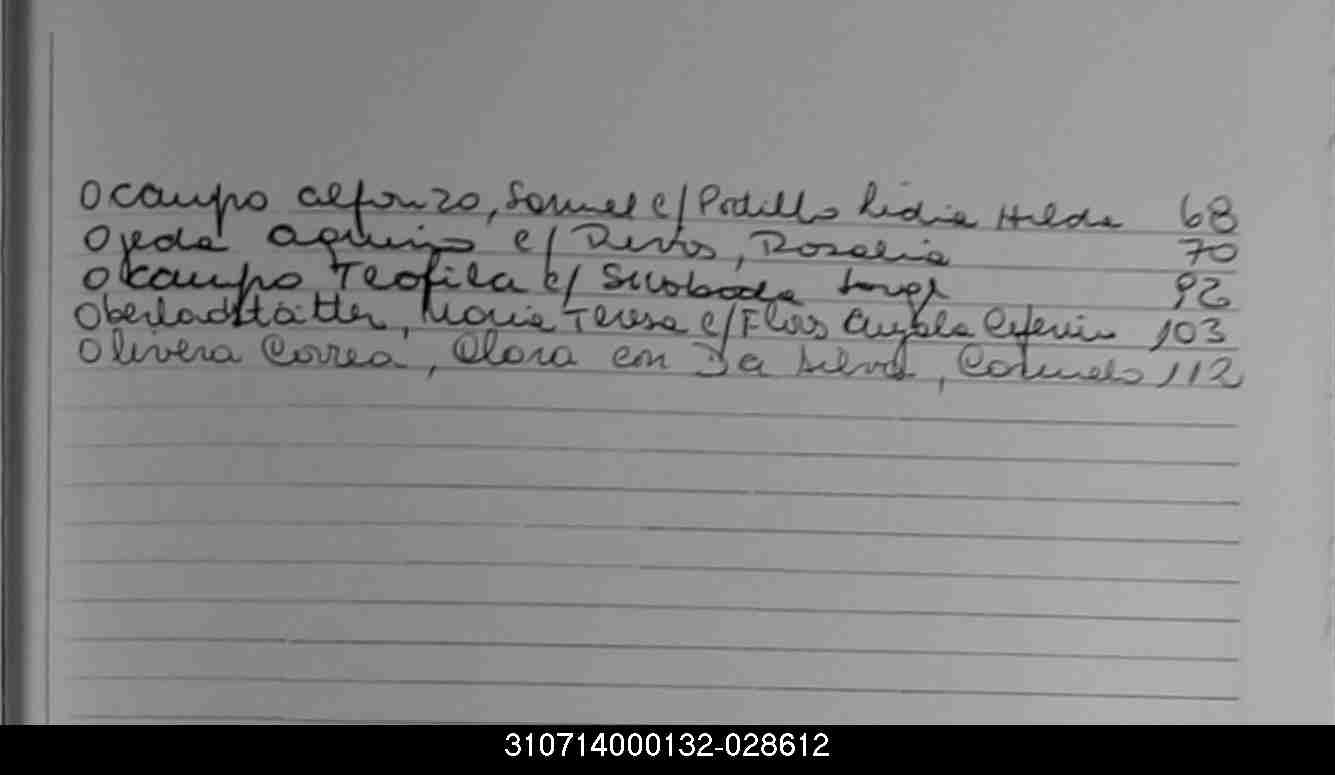 Ocampo Alfonzo, Samuel c/ Portillo Lidia Hilda 68
Ojeda Aquino c/ Rosalia 70
Ocampo Teofila c/ Swoboda Jorge 92
Oberladstätter, Maria Teresa c/ Flor Ayala Ceferino 103
Olivera Correa, Clara con Da Silva, 112
310714000132-028612